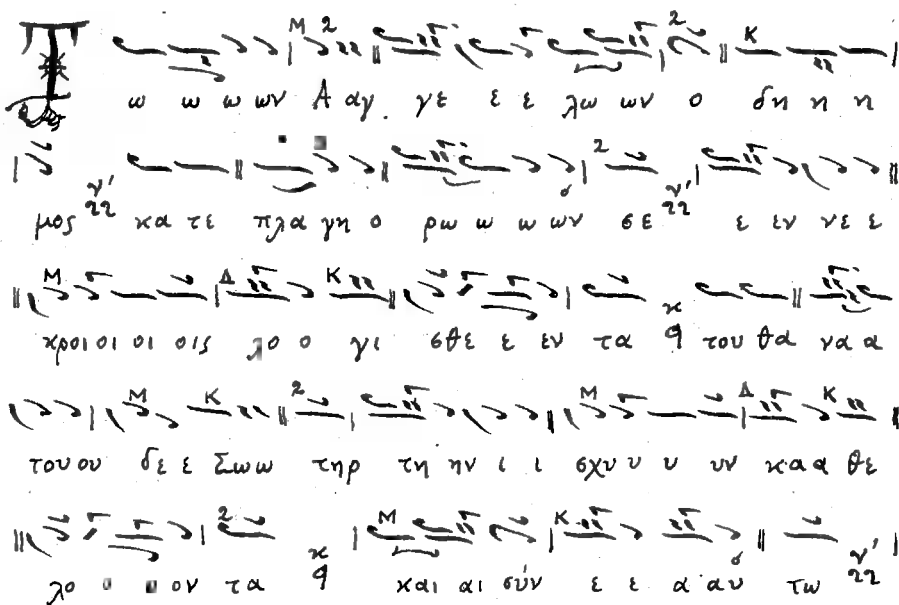 Τ ω ω ω ων Α αγ γε ε ε λω ων ο δη η η
μος κα τε πλα γη ο ρω ω ω ων σε ε εν νε ε
κροι οι οι οις λο ο γι σθε ε εν τα του θα να α
του ου δε ε Σωω τηρ τη ην ι ι σχυ υ υ υν κα α θε
λο ο ο ον τα και αι σύν ε ε α αυ τω